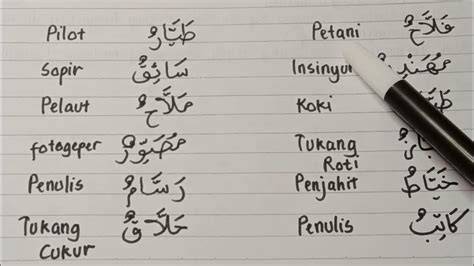 Pilot طَيَّارٌ Petani فَلَّاحٌ
Sopir سَائِقٌ Insinyur
Pelaut مَلَّاحٌ Koki
fotogeper مُصَوِّرٌ Tukang Roti
Penulis رَسَّامٌ Penjahit خَيَّاطٌ
Tukang Cukur حَلَّاقٌ Penulis كَاتِبٌ